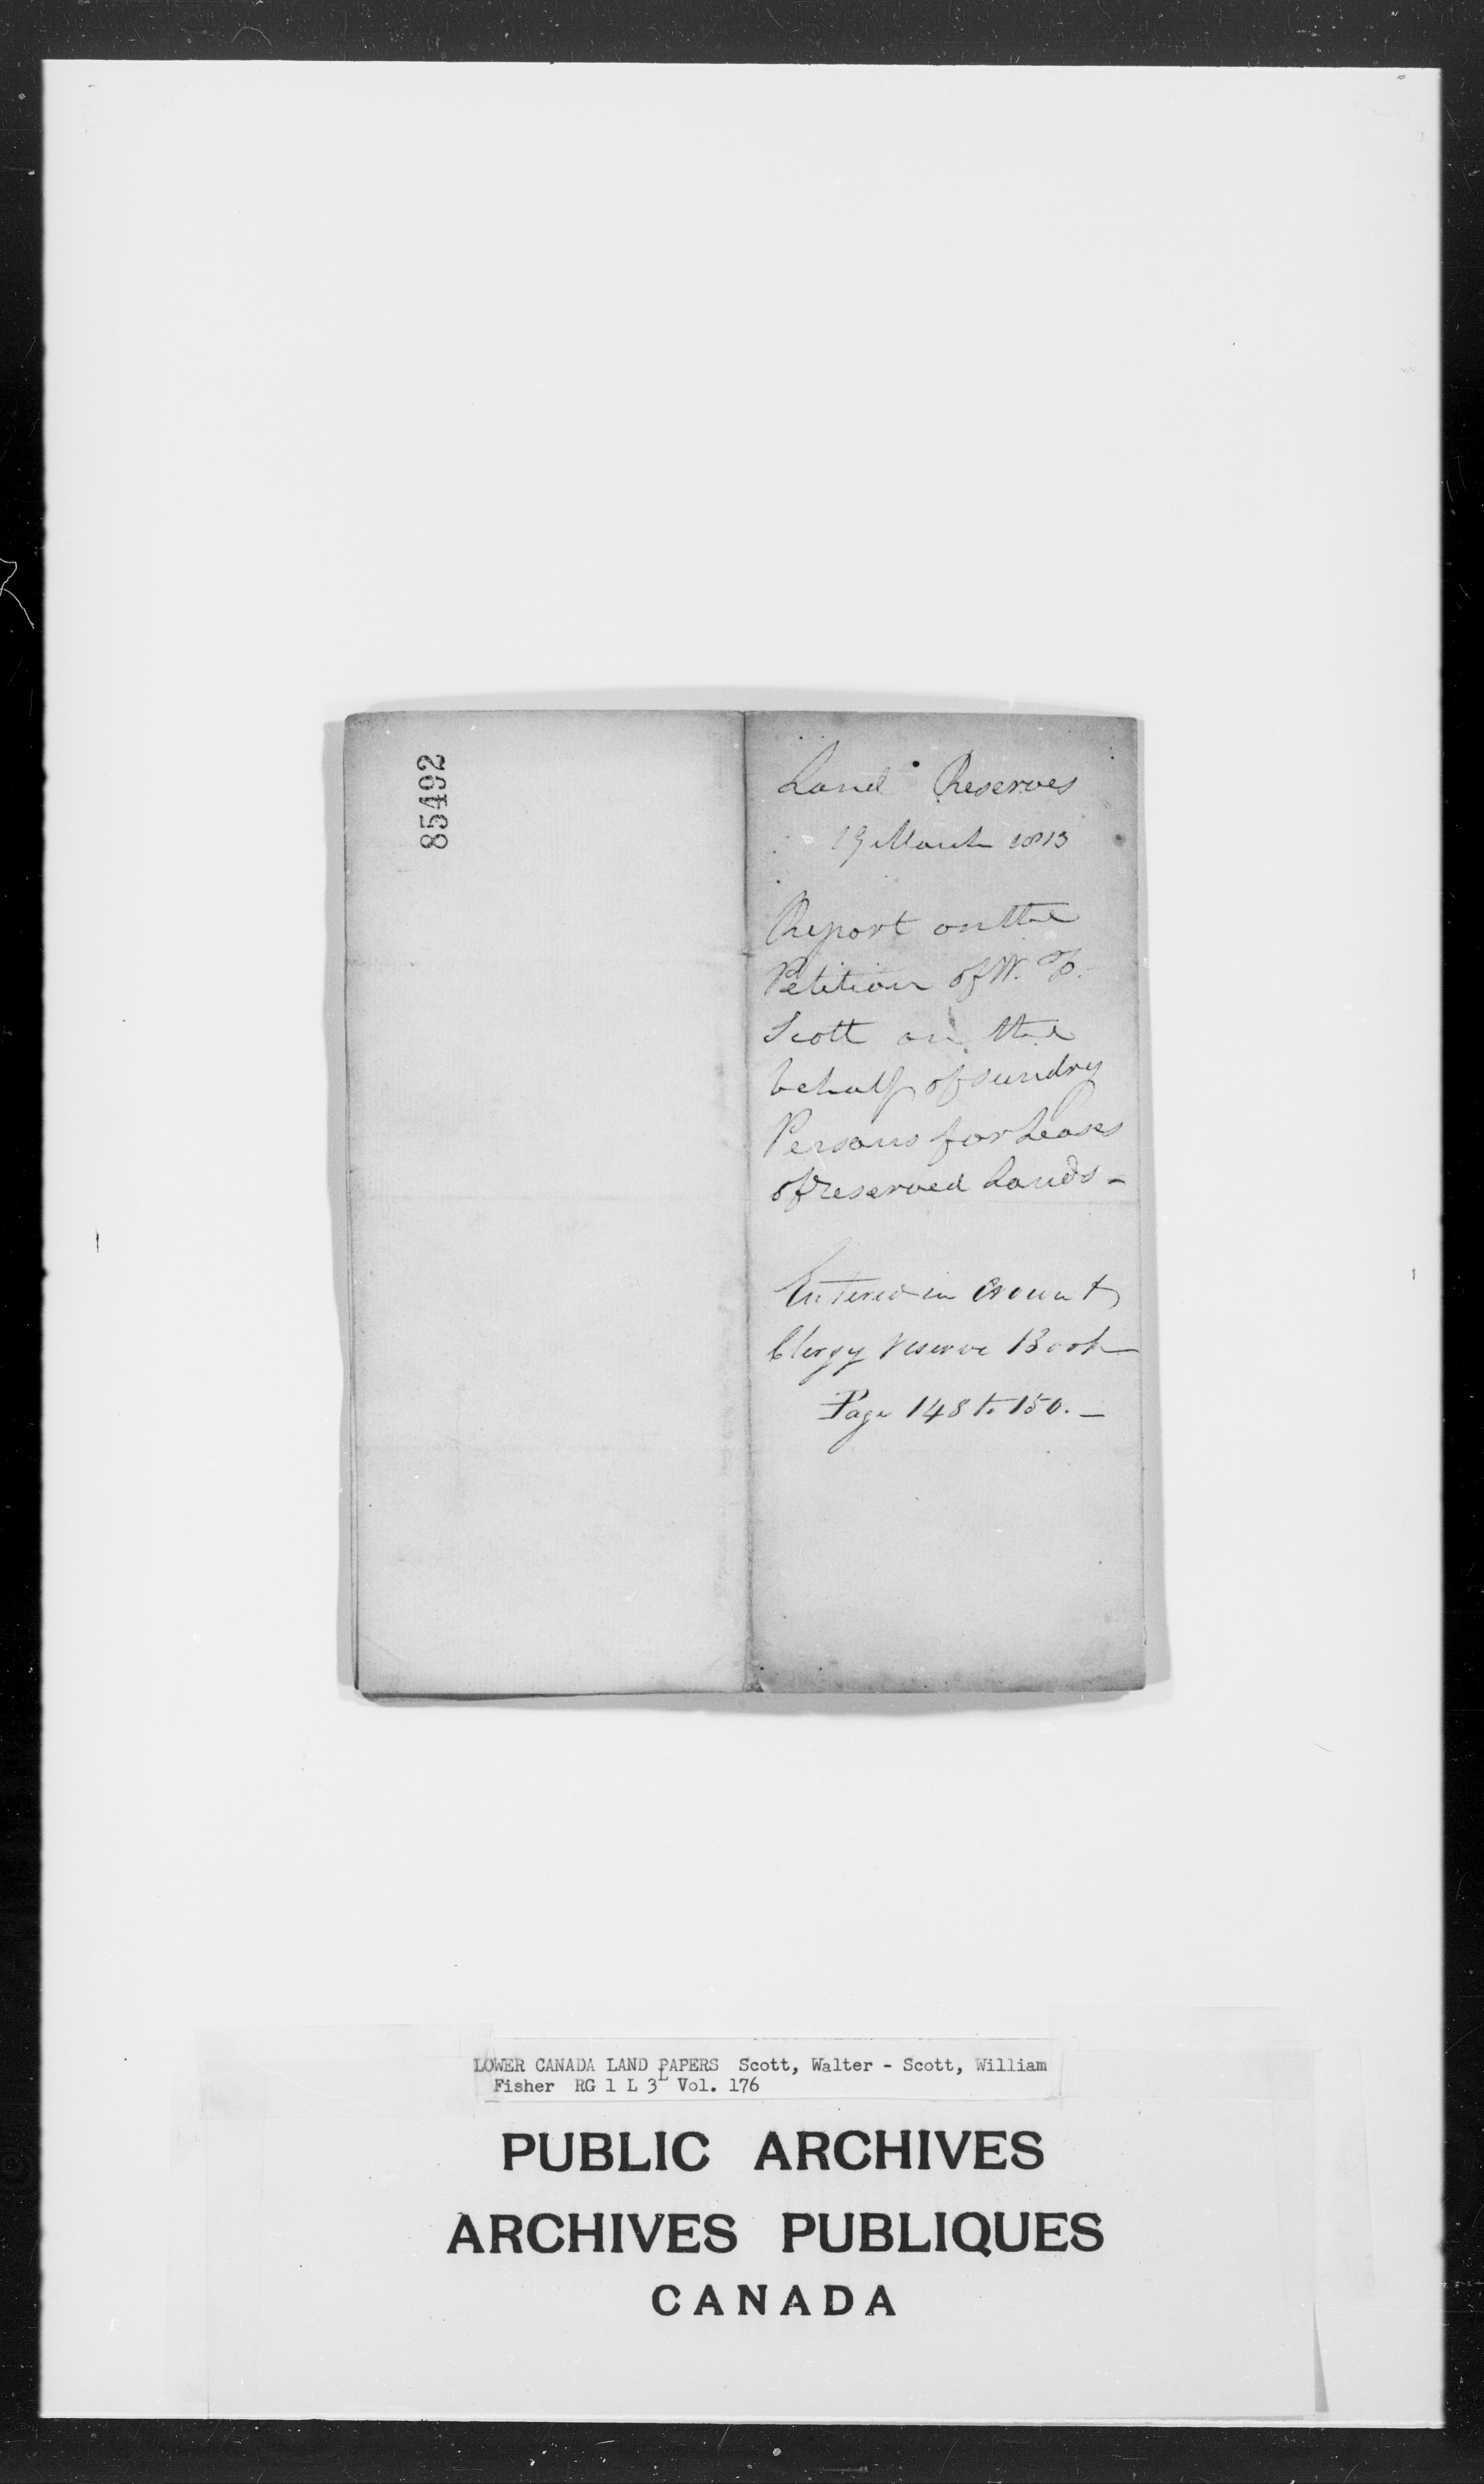 85492
Land Reserves
19 March 1813
Report on the
Petition of W. F.
Scott on the
behalf of sundry
Persons for Leases
of reserved Lands -
Entered in Crown &
Clergy reserve Book
Page 148 to 150. -
LOWER CANADA LAND PAPERS Scott, Walter - Scott, William
Fisher RG 1 L 3L Vol. 176
PUBLIC ARCHIVES
ARCHIVES PUBLIQUES
CANADA